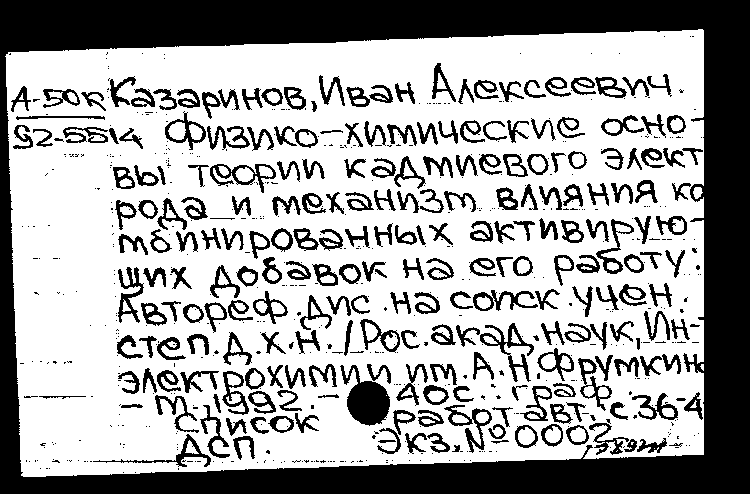 А-50к Казаринов, Иван Алексеевич.
92-5514 Физико-химические осно-
вы теории кадмиевого элект
рода и механизм влияния ко
мбинированных активирую-
щих добавок на его работу:
Автореф. дис. на соиск. учен.
степ. д. х. н. / Рос. акад. наук, Ин-т
электрохимии им. А. Н. Фрумкина
- М., 1992. - 40с.: граф.
Список работ авт.: с. 36-4
ДСП. Экз. № 0002